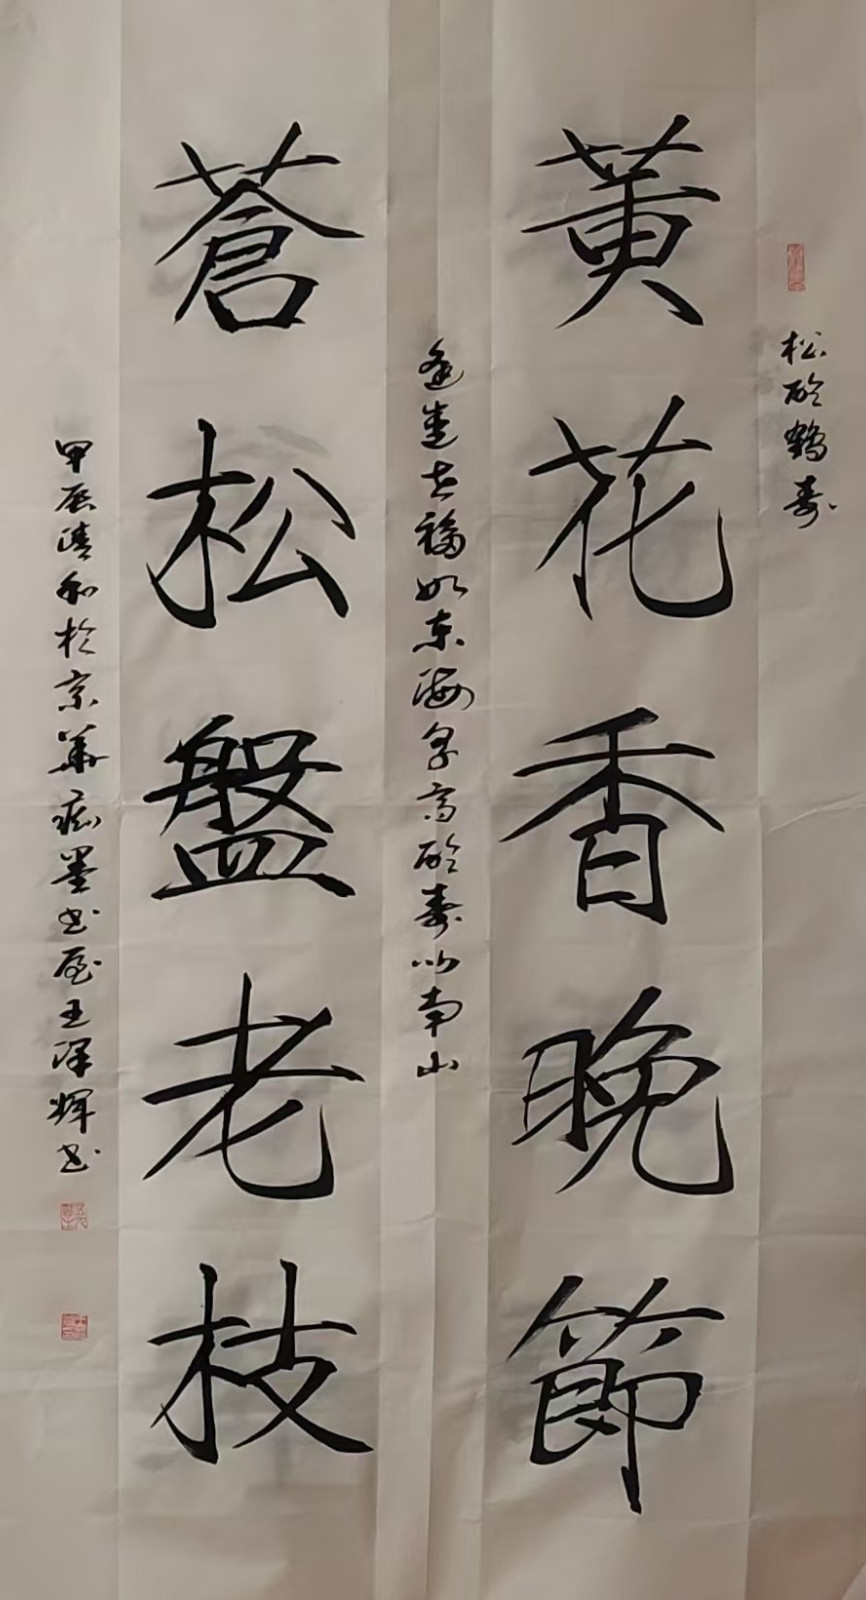 松龄鹤寿
黄花香晚节
福如东海年高龄寿比南山
蒼松盤老枝
甲辰清和於京華痴墨书屋王泽辉书